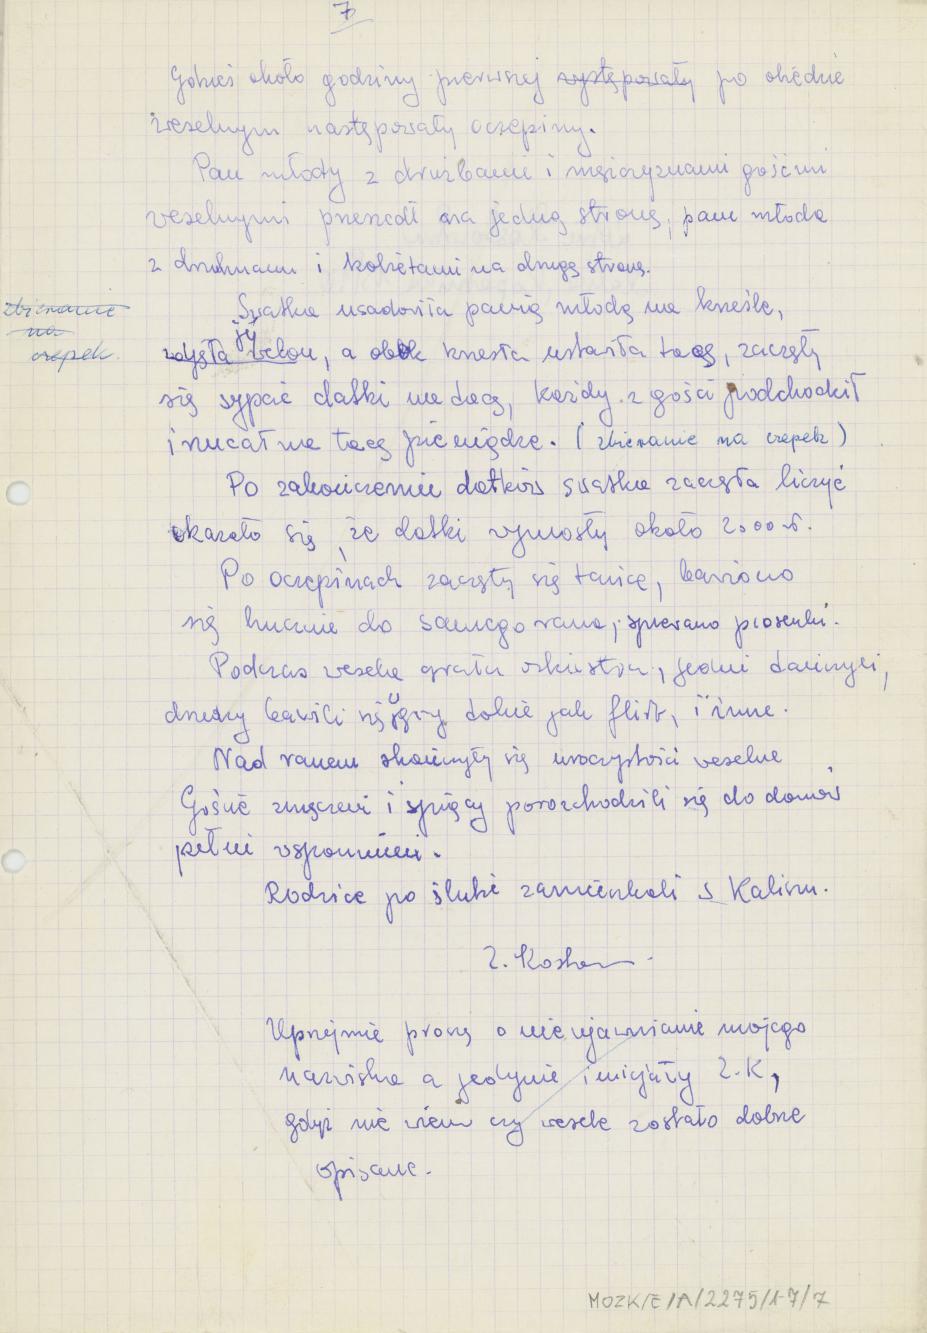 7
Gdzieś około godziny pierwszej występowały po obiedzie
weselnym następowały oczepiny.
Pan młody z drużbami i mężczyznami gośćmi
weselnymi przeszedł na jedną stronę, pani młoda
z druhnami i kobietami na drugą stronę.
zbieranie
na
czepek.
Swatka usadowiła panią młodą na krześle,
jej
zdjęła welon, a obok krzesła ustawiła tacę, zaczęły
się sypać datki na tacę, każdy z gości podchodził
i rzucał na tacę pieniądze. (zbieranie na czepek)
Po zakończeniu datków swatka zaczęła liczyć
okazało się, że datki wynosiły około 2000 zł.
Po oczepinach zaczęły się tańce, bawiono
się hucznie do samego rana, śpiewano piosenki.
Podczas wesela grała orkiestra, jedni tańczyli,
drudzy bawili się w gry takie jak flirt, i inne.
Nad ranem skończyły się uroczystości weselne
Goście zmęczeni i śpiący porozchodzili się do domów
pełni wspomnień.
Rodzice po ślubie zamieszkali w Kaliszu.
Z.
Uprzejmie proszę o nie ujawnianie mojego
nazwiska a jedynie inicjały Z.K,
gdyż nie wiem czy wesele zostało dobrze
opisane.
MOZK/E/A/2275/1-7/7